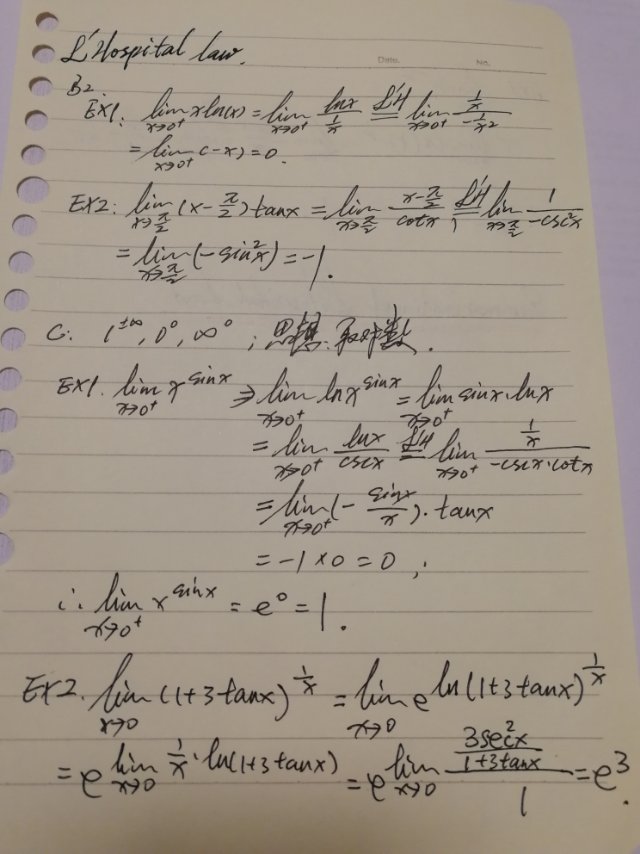 L'Hospital law.
Date. No.
B2.
EX1: lim_{x→0⁺} xln(x) = lim_{x→0⁺} lnx/(1/x) =^{L'H} lim_{x→0⁺} (1/x)/(-1/x²)
= lim_{x→0⁺} (-x) = 0.
EX2: lim_{x→π/2} (x-π/2)tanx = lim_{x→π/2} (x-π/2)/cotx =^{L'H} lim_{x→π/2} 1/(-csc²x)
= lim_{x→π/2} (-sin²x) = -1.
C: 1^{±∞}, 0⁰, ∞⁰ ; 思想:取对数.
EX1. lim_{x→0⁺} x^{sinx} ⇒ lim_{x→0⁺} lnx^{sinx} = lim_{x→0⁺} sinx·lnx
= lim_{x→0⁺} lnx/cscx =^{L'H} lim_{x→0⁺} (1/x)/(-cscx·cotx)
= lim_{x→0⁺} (-sinx/x)·tanx
= -1×0 = 0 ;
∴ lim_{x→0⁺} x^{sinx} = e⁰ = 1.
EX2. lim_{x→0} (1+3tanx)^{1/x} = lim_{x→0} e^{ln(1+3tanx)^{1/x}}
= e^{lim_{x→0} 1/x·ln(1+3tanx)} = e^{lim_{x→0} (3sec²x/(1+3tanx))/1} = e³.